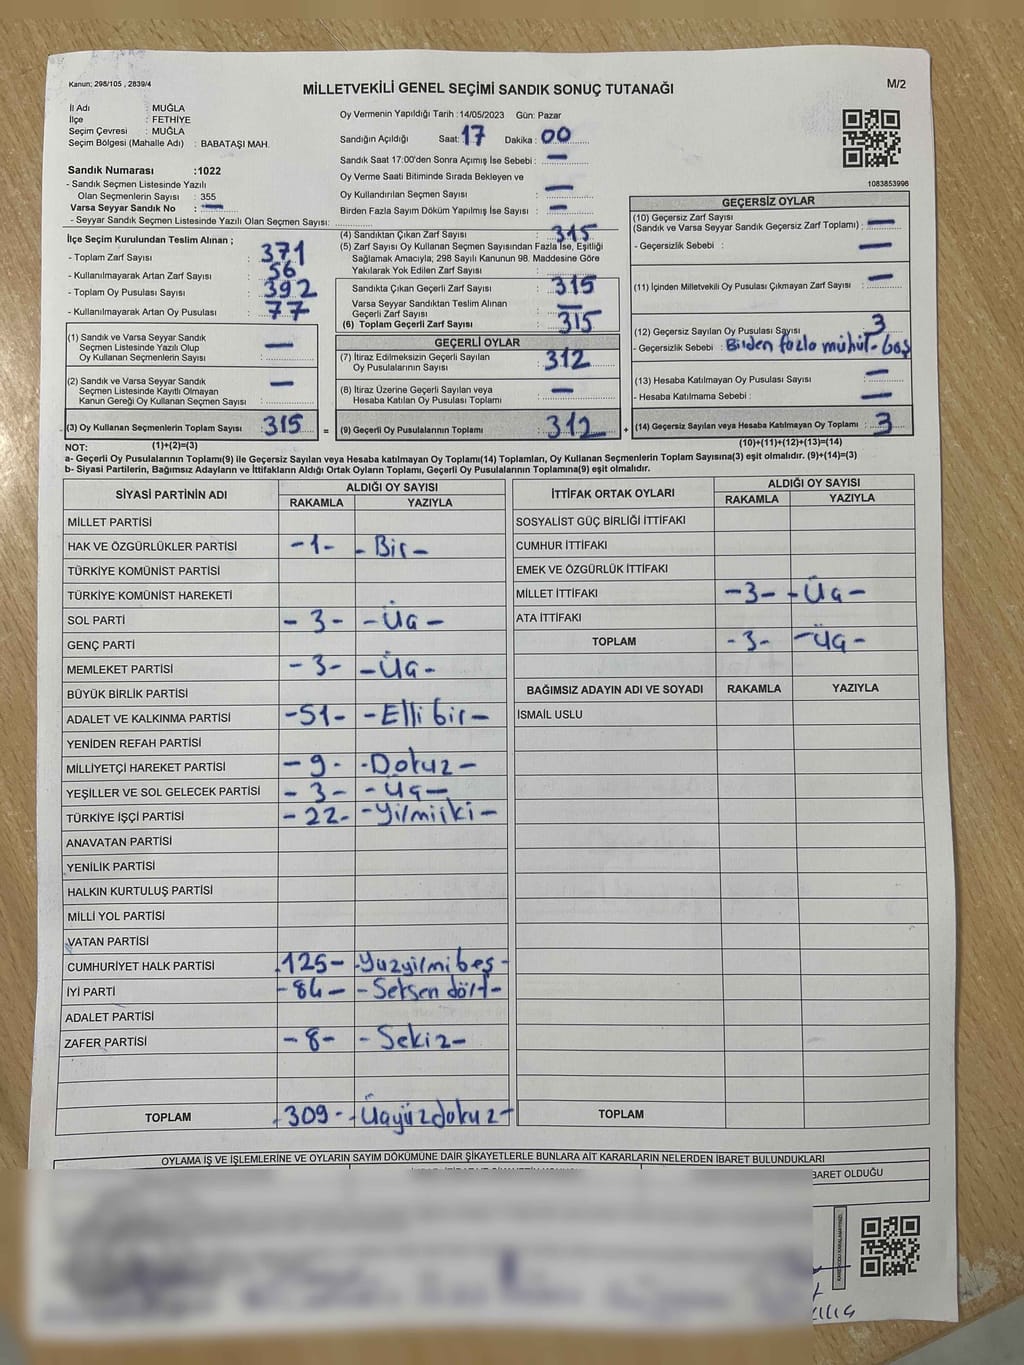 Kanun; 298/105 , 2839/4
MİLLETVEKİLİ GENEL SEÇİMİ SANDIK SONUÇ TUTANAĞI
M/2
İl Adı : MUĞLA
İlçe : FETHİYE
Seçim Çevresi : MUĞLA
Seçim Bölgesi (Mahalle Adı) : BABATAŞI MAH.
Oy Vermenin Yapıldığı Tarih :14/05/2023 Gün: Pazar
Sandığın Açıldığı Saat: 17 Dakika : 00
Sandık Saat 17:00'den Sonra Açımış İse Sebebi : —
Oy Verme Saati Bitiminde Sırada Bekleyen ve
Oy Kullandırılan Seçmen Sayısı : —
Birden Fazla Sayım Döküm Yapılmış İse Sayısı : —
1083853996
Sandık Numarası :1022
- Sandık Seçmen Listesinde Yazılı
Olan Seçmenlerin Sayısı : 355
Varsa Seyyar Sandık No : —
- Seyyar Sandık Seçmen Listesinde Yazılı Olan Seçmen Sayısı:
İlçe Seçim Kurulundan Teslim Alınan ;
- Toplam Zarf Sayısı : 371
- Kullanılmayarak Artan Zarf Sayısı : 56
- Toplam Oy Pusulası Sayısı : 392
- Kullanılmayarak Artan Oy Pusulası : 77
(1) Sandık ve Varsa Seyyar Sandık
Seçmen Listesinde Yazılı Olup
Oy Kullanan Seçmenlerin Sayısı : —
(2) Sandık ve Varsa Seyyar Sandık
Seçmen Listesinde Kayıtlı Olmayan
Kanun Gereği Oy Kullanan Seçmen Sayısı : —
(3) Oy Kullanan Seçmenlerin Toplam Sayısı : 315
(4) Sandıktan Çıkan Zarf Sayısı : 315
(5) Zarf Sayısı Oy Kullanan Seçmen Sayısından Fazla İse, Eşitliği
Sağlamak Amacıyla; 298 Sayılı Kanunun 98. Maddesine Göre
Yakılarak Yok Edilen Zarf Sayısı :
Sandıkta Çıkan Geçerli Zarf Sayısı : 315
Varsa Seyyar Sandıktan Teslim Alınan
Geçerli Zarf Sayısı : —
(6) Toplam Geçerli Zarf Sayısı : 315
GEÇERLİ OYLAR
(7) İtiraz Edilmeksizin Geçerli Sayılan
Oy Pusulalarının Sayısı : 312
(8) İtiraz Üzerine Geçerli Sayılan veya
Hesaba Katılan Oy Pusulası Toplamı : —
= (9) Geçerli Oy Pusulalarının Toplamı : 312
GEÇERSİZ OYLAR
(10) Geçersiz Zarf Sayısı
(Sandık ve Varsa Seyyar Sandık Geçersiz Zarf Toplamı) : —
- Geçersizlik Sebebi : —
(11) İçinden Milletvekili Oy Pusulası Çıkmayan Zarf Sayısı : —
(12) Geçersiz Sayılan Oy Pusulası Sayısı : 3
- Geçersizlik Sebebi : Birden fazla mühür-boş
(13) Hesaba Katılmayan Oy Pusulası Sayısı : —
- Hesaba Katılmama Sebebi : —
+ (14) Geçersiz Sayılan veya Hesaba Katılmayan Oy Toplamı : 3
NOT: (1)+(2)=(3)
(10)+(11)+(12)+(13)=(14)
a- Geçerli Oy Pusulalarının Toplamı(9) ile Geçersiz Sayılan veya Hesaba katılmayan Oy Toplamı(14) Toplamları, Oy Kullanan Seçmenlerin Toplam Sayısına(3) eşit olmalıdır. (9)+(14)=(3)
b- Siyasi Partilerin, Bağımsız Adayların ve İttifakların Aldığı Ortak Oyların Toplamı, Geçerli Oy Pusulalarının Toplamına(9) eşit olmalıdır.
SİYASİ PARTİNİN ADI
ALDIĞI OY SAYISI
RAKAMLA YAZIYLA
MİLLET PARTİSİ
HAK VE ÖZGÜRLÜKLER PARTİSİ -1- - Bir -
TÜRKİYE KOMÜNİST PARTİSİ
TÜRKİYE KOMÜNİST HAREKETİ
SOL PARTİ - 3 - - Üç -
GENÇ PARTİ
MEMLEKET PARTİSİ - 3 - - Üç -
BÜYÜK BİRLİK PARTİSİ
ADALET VE KALKINMA PARTİSİ -51- - Elli bir -
YENİDEN REFAH PARTİSİ
MİLLİYETÇİ HAREKET PARTİSİ - 9 - - Dokuz -
YEŞİLLER VE SOL GELECEK PARTİSİ - 3 - - Üç -
TÜRKİYE İŞÇİ PARTİSİ - 22 - - Yirmiiki -
ANAVATAN PARTİSİ
YENİLİK PARTİSİ
HALKIN KURTULUŞ PARTİSİ
MİLLİ YOL PARTİSİ
VATAN PARTİSİ
CUMHURİYET HALK PARTİSİ -125- - Yuzyirmi beş -
İYİ PARTİ - 84 - - Seksen dört -
ADALET PARTİSİ
ZAFER PARTİSİ - 8 - - Sekiz -
TOPLAM - 309 - - Üçyüzdokuz -
İTTİFAK ORTAK OYLARI
ALDIĞI OY SAYISI
RAKAMLA YAZIYLA
SOSYALİST GÜÇ BİRLİĞİ İTTİFAKI
CUMHUR İTTİFAKI
EMEK VE ÖZGÜRLÜK İTTİFAKI
MİLLET İTTİFAKI - 3 - - Üç -
ATA İTTİFAKI
TOPLAM - 3 - - Üç -
BAĞIMSIZ ADAYIN ADI VE SOYADI RAKAMLA YAZIYLA
İSMAİL USLU
TOPLAM
OYLAMA İŞ VE İŞLEMLERİNE VE OYLARIN SAYIM DÖKÜMÜNE DAİR ŞİKAYETLERLE BUNLARA AİT KARARLARIN NELERDEN İBARET BULUNDUKLARI
BARET OLDUĞU